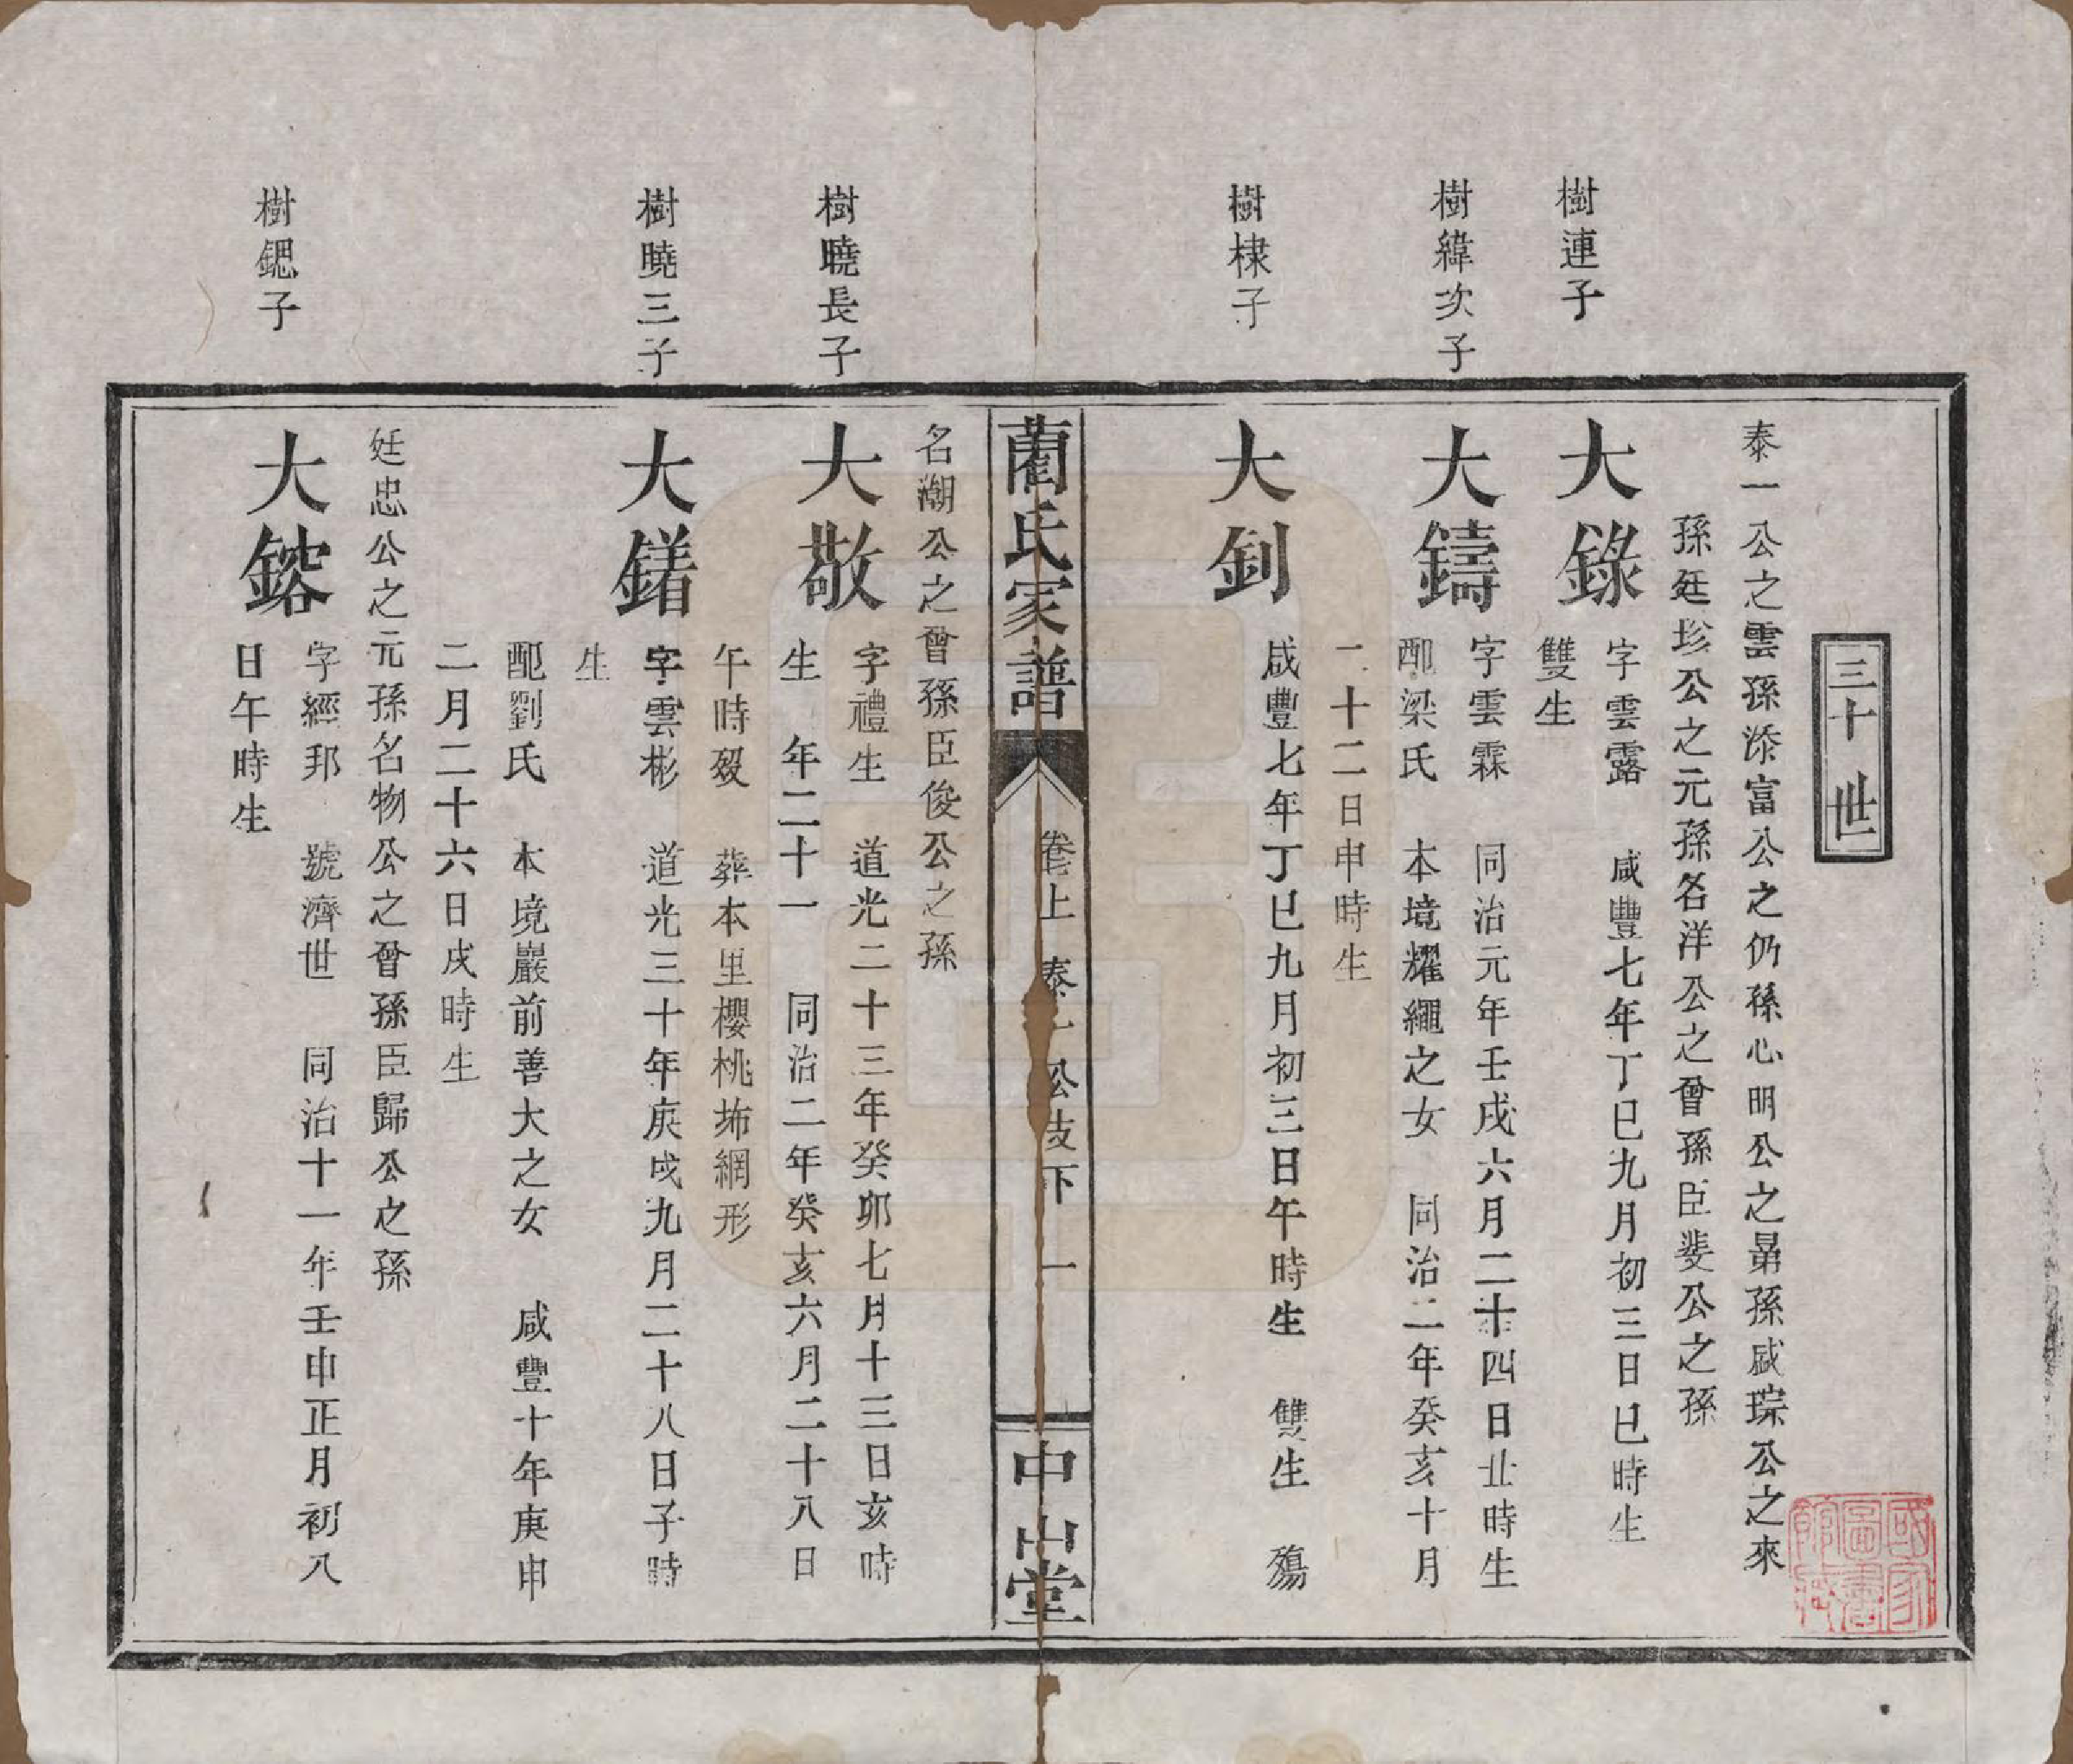 三十世
泰一公之雲孫添富公之仍孫心明公之晜孫咸琮公之來
孫廷珍公之元孫名洋公之曾孫臣斐公之孫
樹連子
大錄
字雲露 咸豐七年丁巳九月初三日巳時生
雙生
樹緯次子
大鑄
字雲霖 同治元年壬戌六月二十四日丑時生
配梁氏 本境耀繩之女 同治二年癸亥十月
二十二日申時生
樹棣子
大釗
咸豐七年丁巳九月初三日午時生 雙生 殤
藺氏家譜 卷 上 泰一公支下 一 中山堂
名潮公之曾孫臣俊公之孫
樹曉長子
大敬
字禮生 道光二十三年癸卯七月十三日亥時
生 年二十一 同治二年癸亥六月二十八日
午時歿 葬本里櫻桃㘵網形
樹曉三子
大鍺
字雲彬 道光三十年庚戌九月二十八日子時
生
配劉氏 本境嚴前善大之女 咸豐十年庚申
二月二十六日戌時生
廷忠公之元孫名物公之曾孫臣歸公之孫
樹鍶子
大鎔
字經邦 號濟世 同治十一年壬申正月初八
日午時生
國家圖書館藏